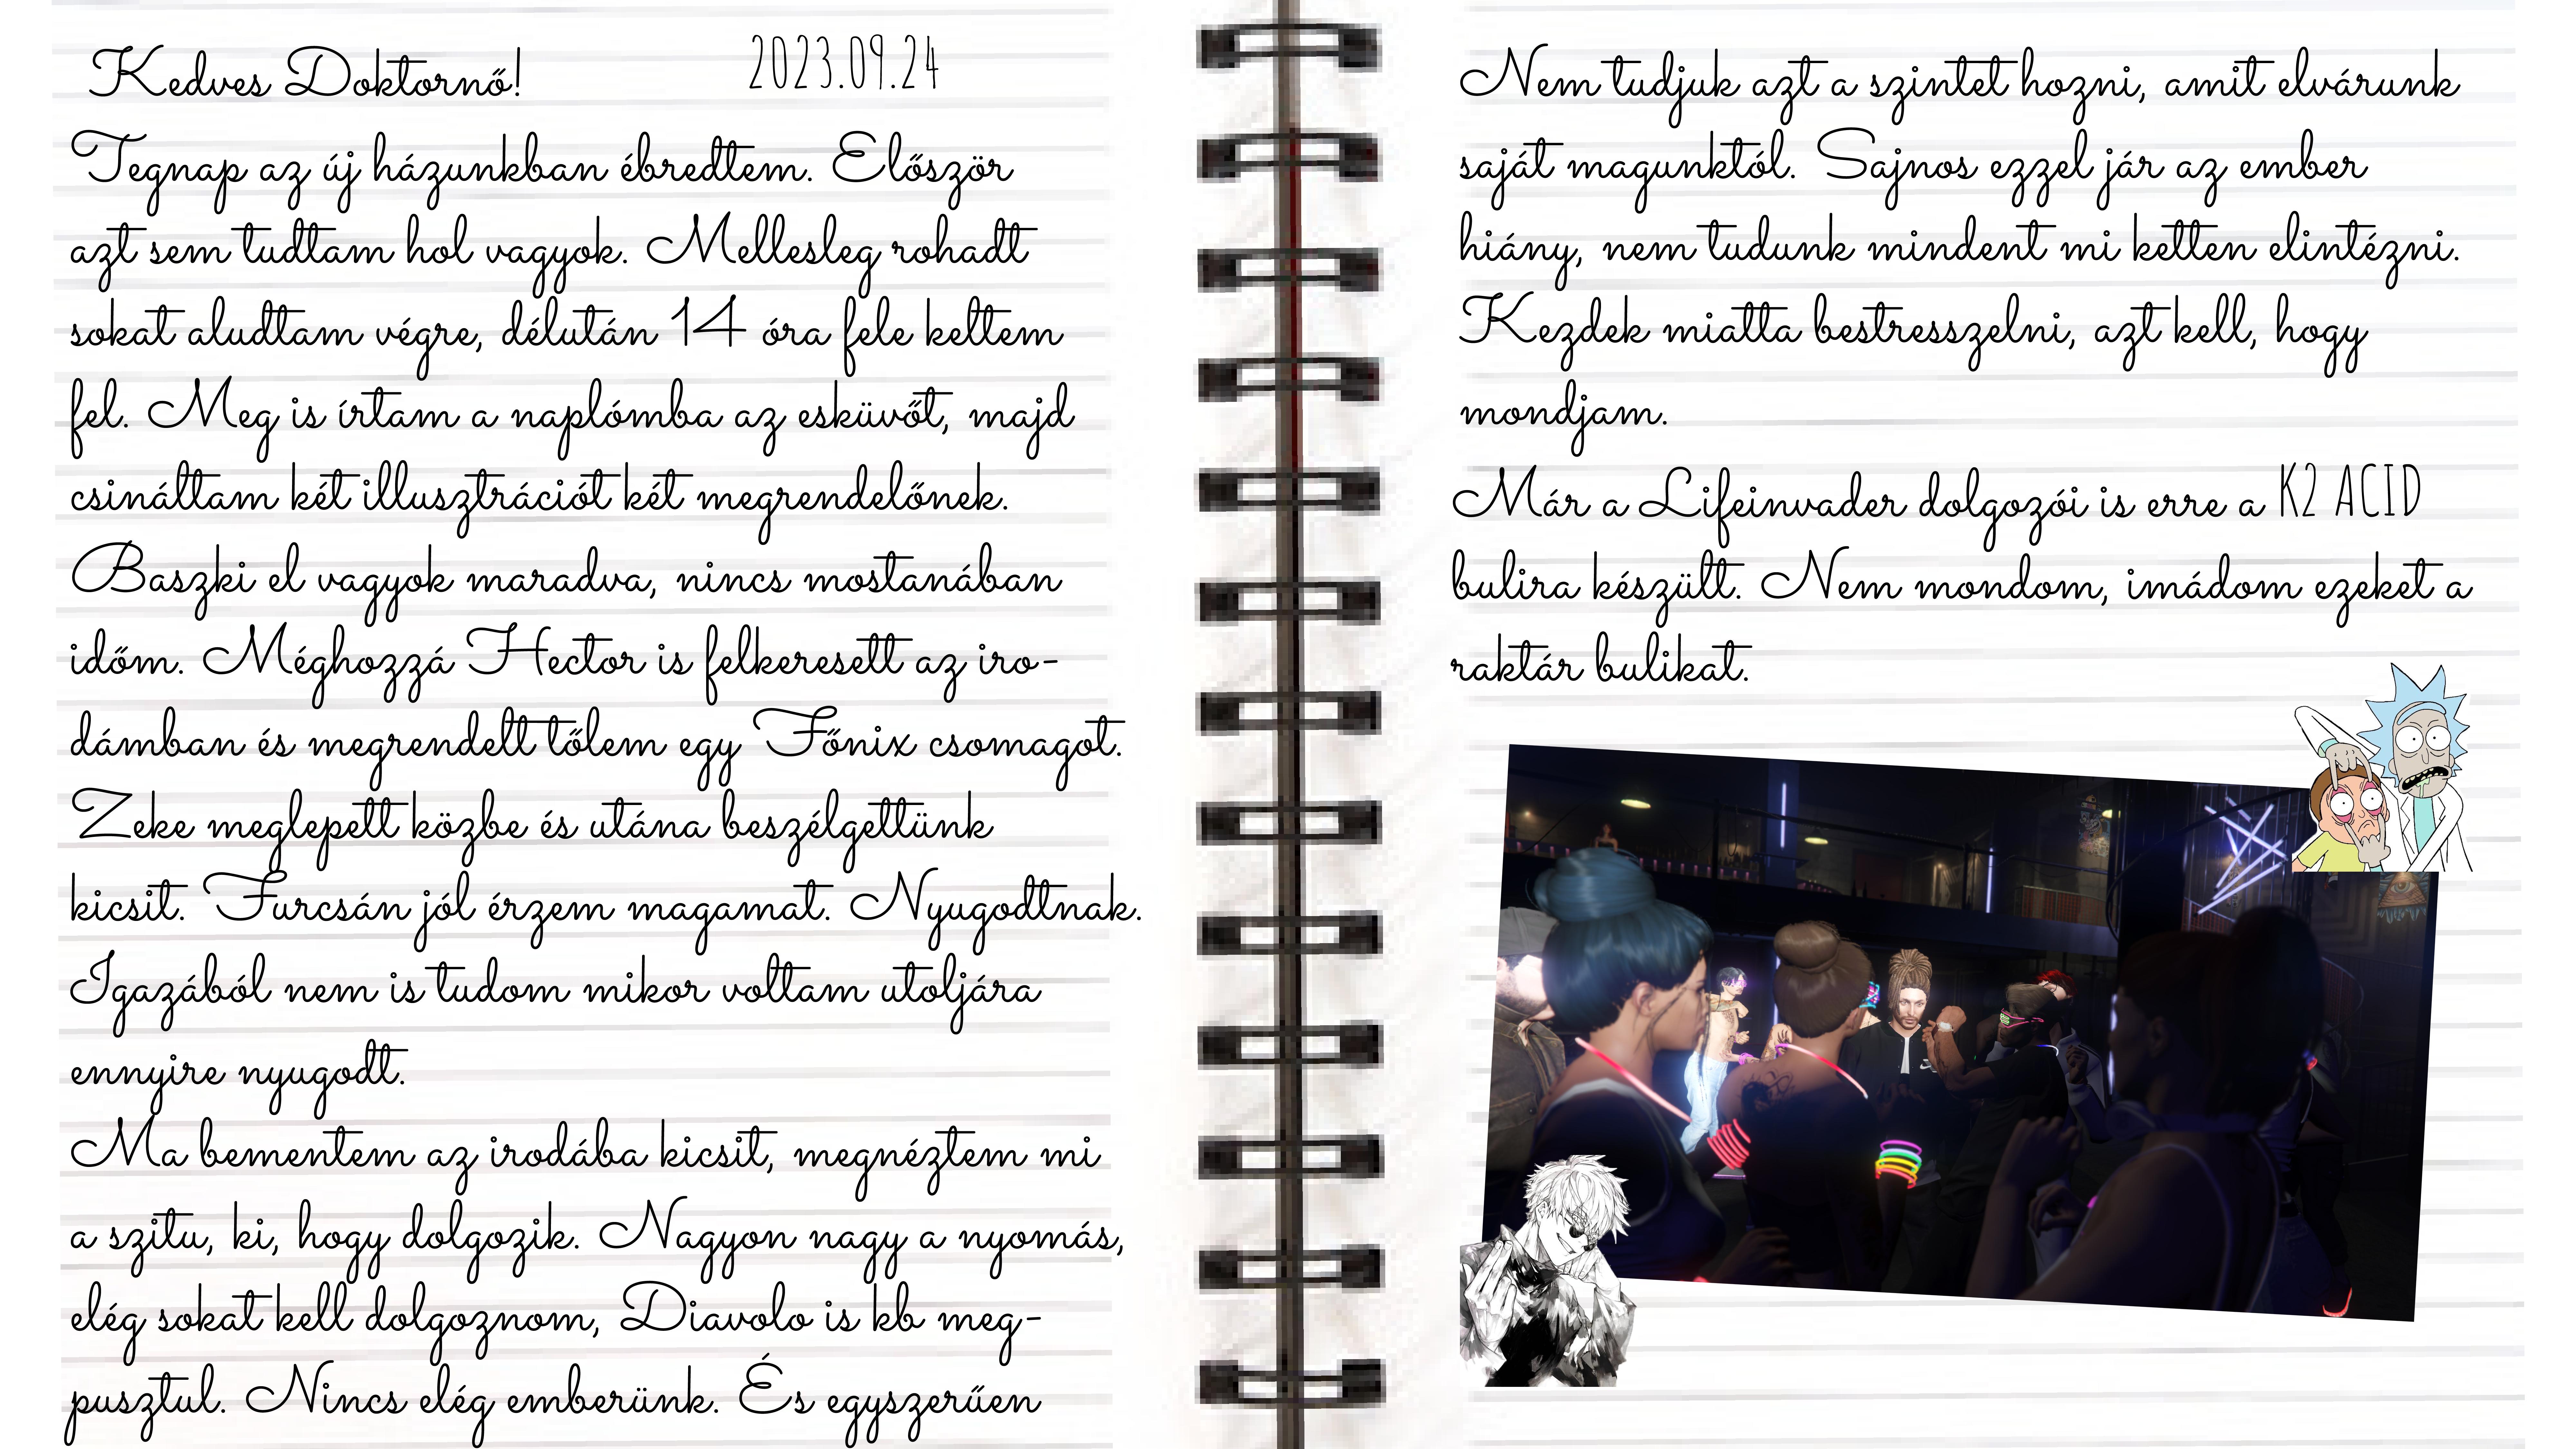 Kedves Doktornő!
2023.09.24
Tegnap az új házunkban ébredtem. Először
azt sem tudtam hol vagyok. Mellesleg rohadt
sokat aludtam végre, délután 14 óra fele keltem
fel. Meg is írtam a naplómba az esküvőt, majd
csináltam két illusztrációt két megrendelőnek.
Baszki el vagyok maradva, nincs mostanában
időm. Méghozzá Hector is felkeresett az iro-
dámban és megrendelt tőlem egy Főnix csomagot.
Zeke meglepett közbe és utána beszélgettünk
kicsit. Furcsán jól érzem magamat. Nyugodtnak.
Igazából nem is tudom mikor voltam utoljára
ennyire nyugodt.
Ma bementem az irodába kicsit, megnéztem mi
a szitu, ki, hogy dolgozik. Nagyon nagy a nyomás,
elég sokat kell dolgoznom, Diavolo is kb meg-
pusztul. Nincs elég emberünk. És egyszerűen
Nem tudjuk azt a szintet hozni, amit elvárunk
saját magunktól. Sajnos ezzel jár az ember
hiány, nem tudunk mindent mi ketten elintézni.
Kezdek miatta bestresszelni, azt kell, hogy
mondjam.
Már a Lifeinvader dolgozói is erre a K2 ACID
bulira készült. Nem mondom, imádom ezeket a
raktár bulikat.